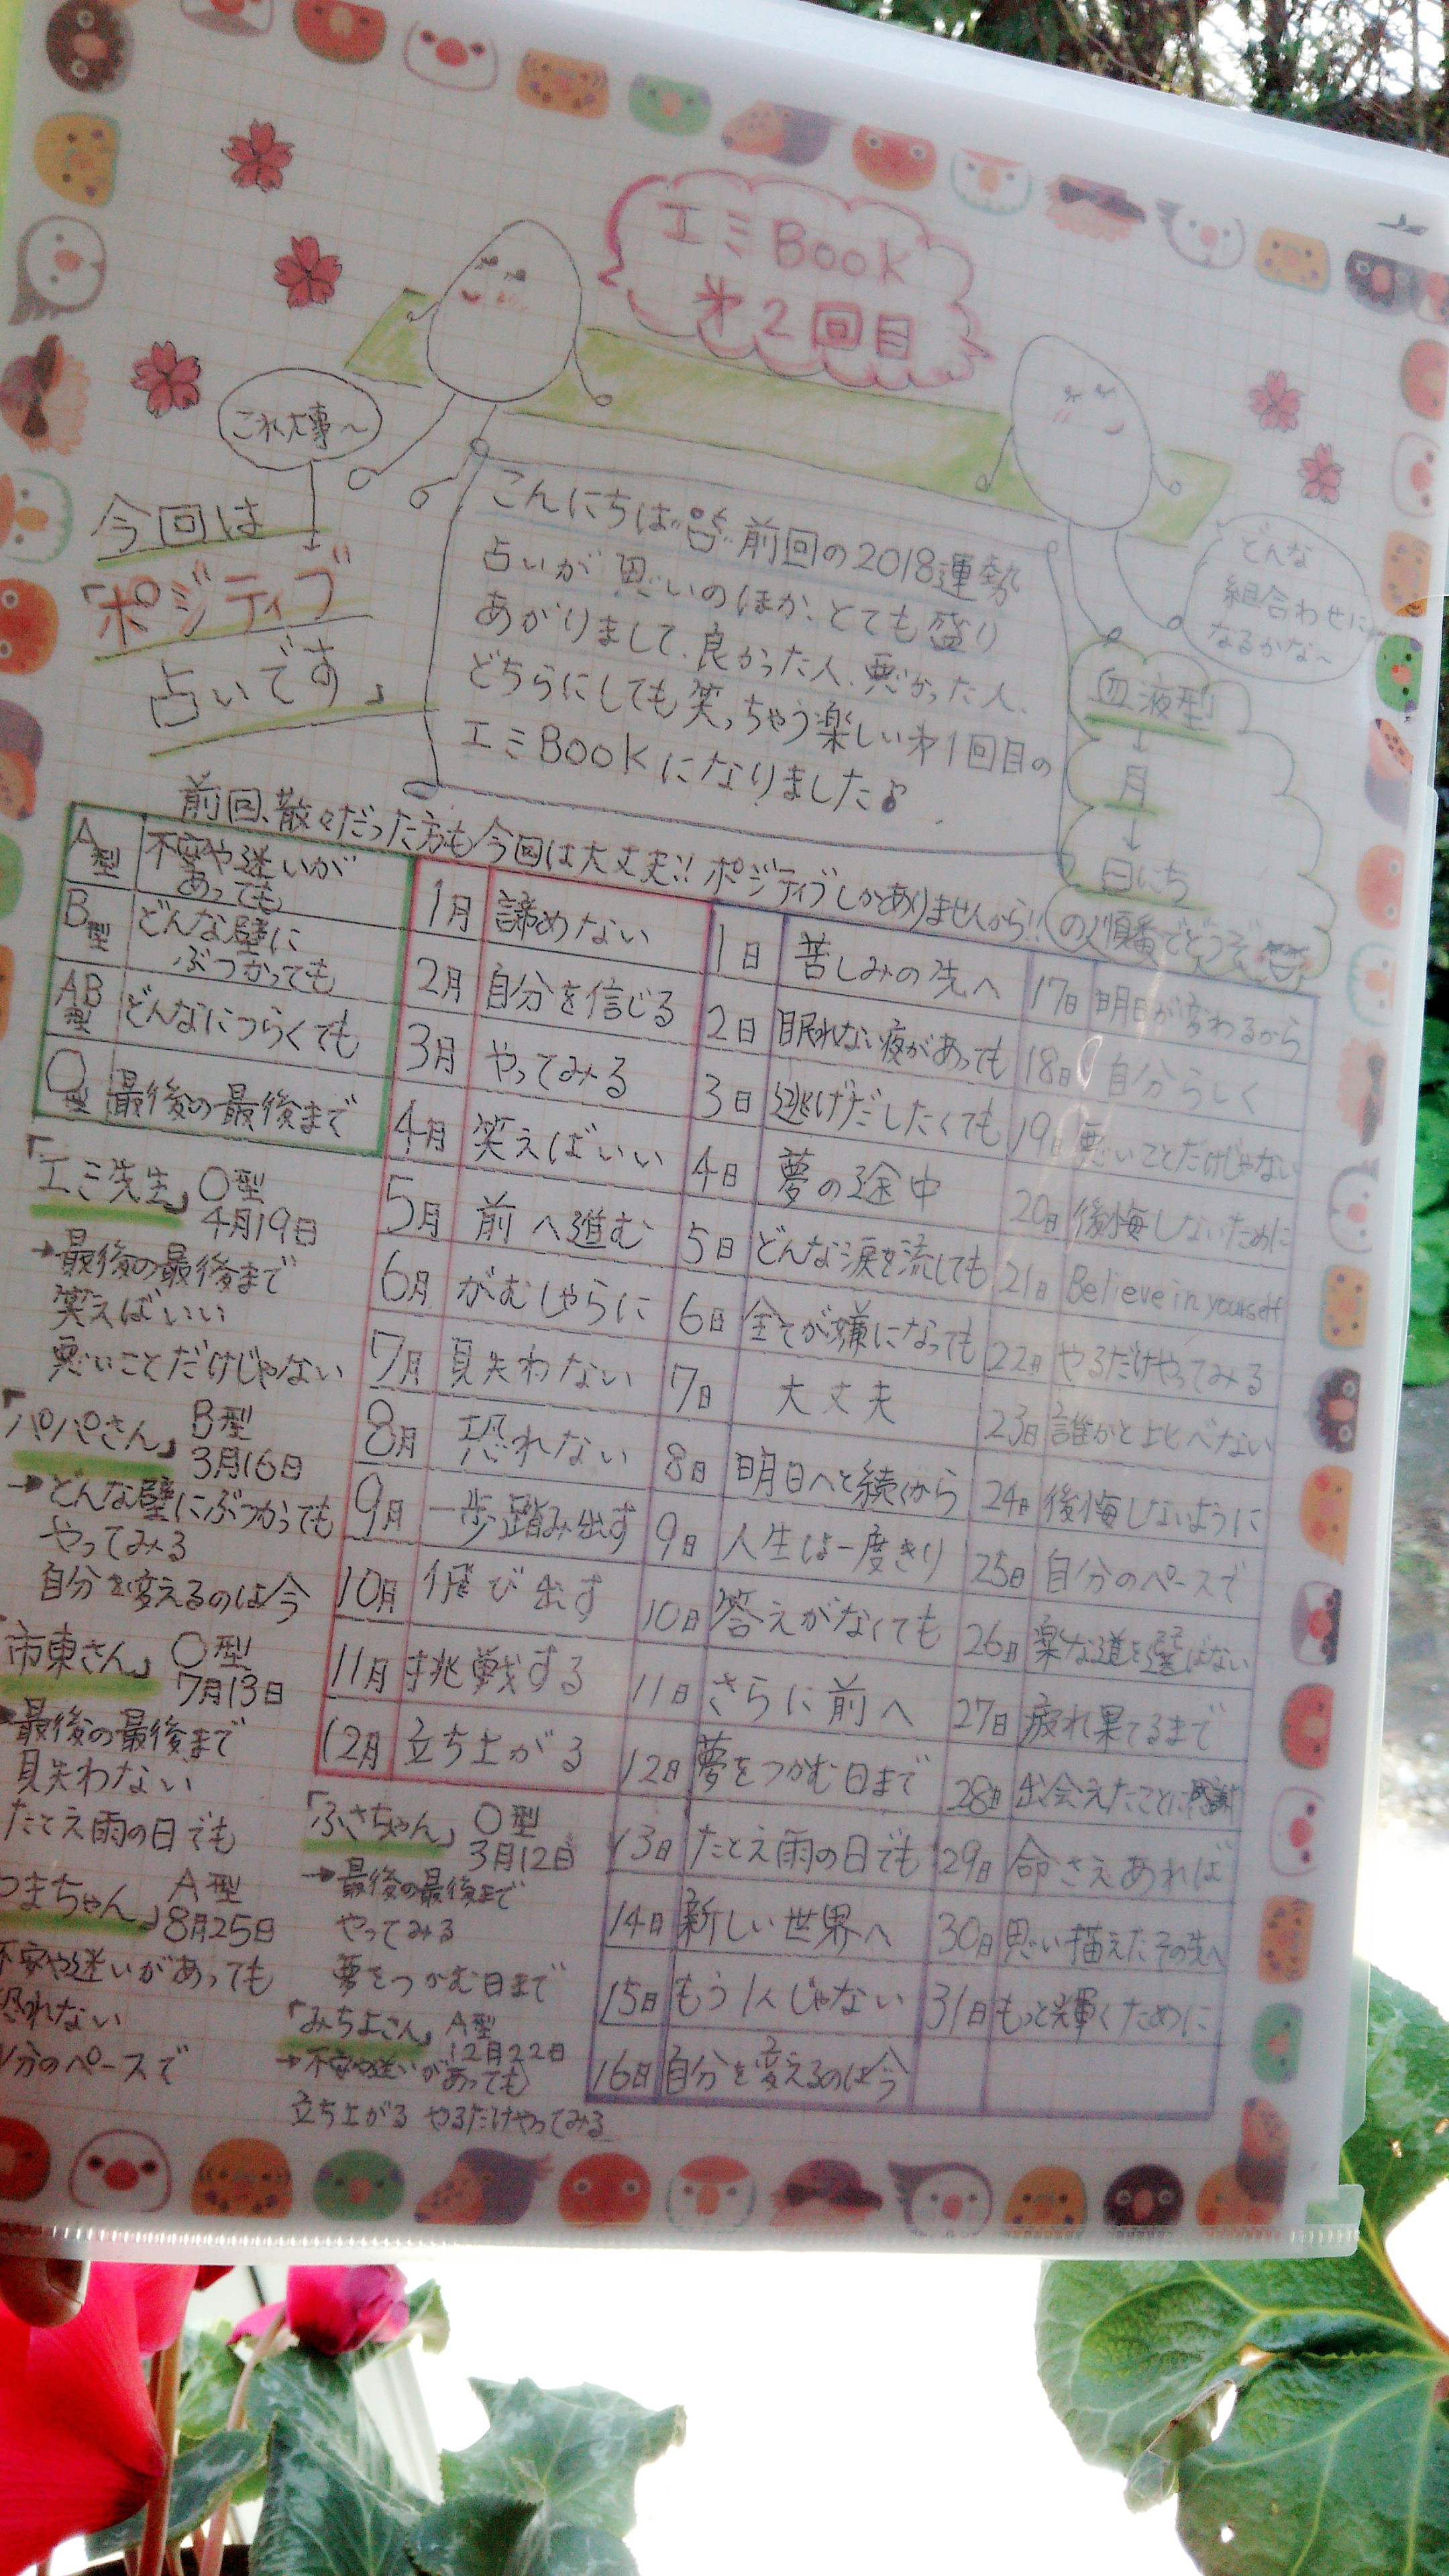 エミBook
第2回目
これ大事〜
今回は
「ポジティブ
占いです」
こんにちは 前回の2018運勢
占いが思いのほか、とても盛り
あがりまして、良かった人、悪かった人、
どちらにしても笑っちゃう楽しい第1回目の
エミBookになりました♪
どんな
組合わせに
なるかな〜
血液型
↓
月
↓
日にち
の順番でどうぞ
前回、散々だった方も今回は大丈夫!! ポジティブしかありませんから!!
A型 不安や迷いが
あっても
B型 どんな壁に
ぶつかっても
AB型 どんなにつらくても
O型 最後の最後まで
1月 諦めない
2月 自分を信じる
3月 やってみる
4月 笑えばいい
5月 前へ進む
6月 がむしゃらに
7月 見失わない
8月 恐れない
9月 一歩踏み出す
10月 飛び出す
11月 挑戦する
12月 立ち上がる
1日 苦しみの先へ
2日 眠れない夜があっても
3日 逃げだしたくても
4日 夢の途中
5日 どんな涙を流しても
6日 全てが嫌になっても
7日 大丈夫
8日 明日へと続くから
9日 人生は一度きり
10日 答えがなくても
11日 さらに前へ
12日 夢をつかむ日まで
13日 たとえ雨の日でも
14日 新しい世界へ
15日 もう1人じゃない
16日 自分を変えるのは今
17日 明日が変わるから
18日 自分らしく
19日 悪いことだけじゃない
20日 後悔しないために
21日 Believe in yourself
22日 やるだけやってみる
23日 誰かと比べない
24日 後悔しないように
25日 自分のペースで
26日 楽な道を選ばない
27日 疲れ果てるまで
28日 出会えたことに感謝
29日 命さえあれば
30日 思い描えたその先へ
31日 もっと輝くために
「エミ先生」 O型
4月19日
→最後の最後まで
笑えばいい
悪いことだけじゃない
「パパさん」 B型
3月16日
→どんな壁にぶつかっても
やってみる
自分を変えるのは今
「市東さん」 O型
7月13日
最後の最後まで
見失わない
たとえ雨の日でも
つまちゃん」 A型
8月25日
不安や迷いがあっても
恐れない
分のペースで
「ふさちゃん」 O型
3月12日
→最後の最後まで
やってみる
夢をつかむ日まで
「みちよこん」 A型
12月22日
→不安や迷いが
あっても
立ち上がる やるだけやってみる